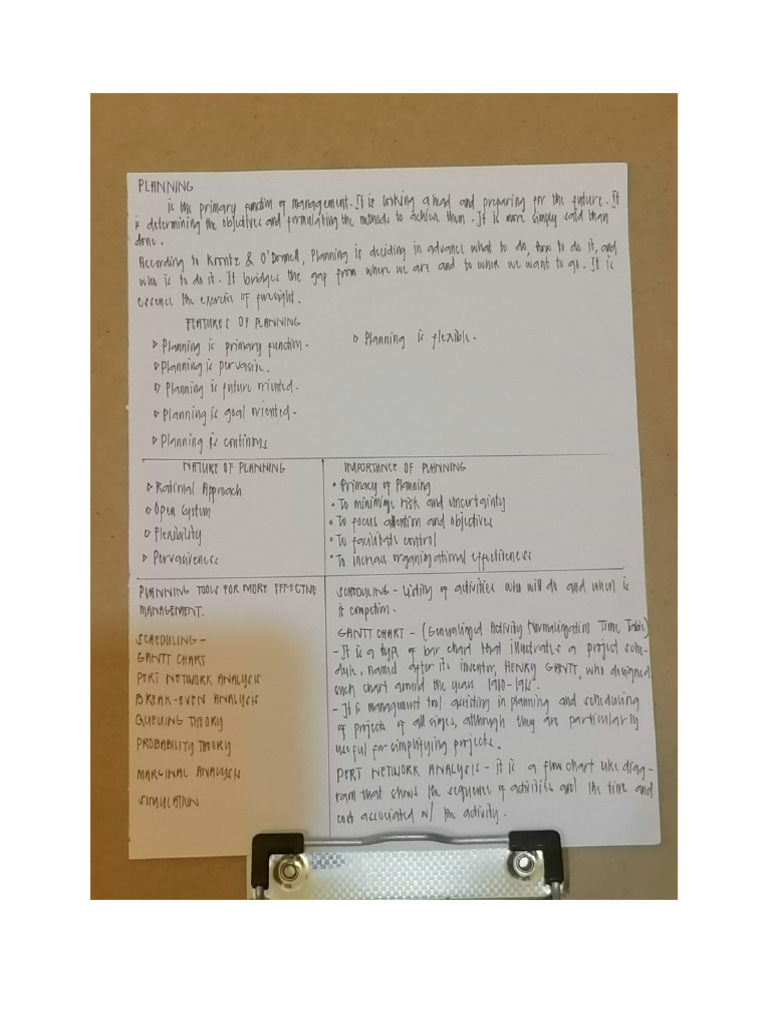 PLANNING
is the primary function of management. It is looking ahead and preparing for the future. It
is determining the objectives and formulating the methods to achieve them. It is more simply said than
done.
According to Koontz & O'Donnell, Planning is deciding in advance what to do, how to do it, and
who is to do it. It bridges the gap from where we are and to where we want to go. It is
essence the exercise of foresight.
FEATURES OF PLANNING
▹ Planning is primary function.
▹ Planning is flexible.
▹ Planning is pervasive.
▹ Planning is future oriented.
▹ Planning is goal oriented.
▹ Planning is continous
NATURE OF PLANNING
▹ Rational Approach
▹ Open System
▹ Flexibility
▹ Pervasiveness
IMPORTANCE OF PLANNING
• Primacy of Planning
• To minimize risk and uncertainty
• To focus attention and objectives
• To facilitate control
• To increase organizational effectiveness
PLANNING TOOLS FOR MORE EFFECTIVE
MANAGEMENT.
SCHEDULING -
GANTT CHART
PERT NETWORK ANALYSIS
BREAK-EVEN ANALYSIS
QUEUING THEORY
PROBABILITY THEORY
MARGINAL ANALYSIS
SIMULATION
SCHEDULING - Listing of activities who will do and when is
it
GANTT CHART - (Generalized Activity Normalization Time Table)
- It is a type of bar chart that illustrates a project sche-
dule, named after its inventor, HENRY GANTT, who designed
such chart around the years 1910-1915.
- It is management tool assisting in planning and scheduling
of projects of all sizes, although they are particularly
useful for simplifying projects.
PERT NETWORK ANALYSIS - it is a flow chart like diag-
ram that shows the sequence of activities and the time and
cost associated w/ the activity.